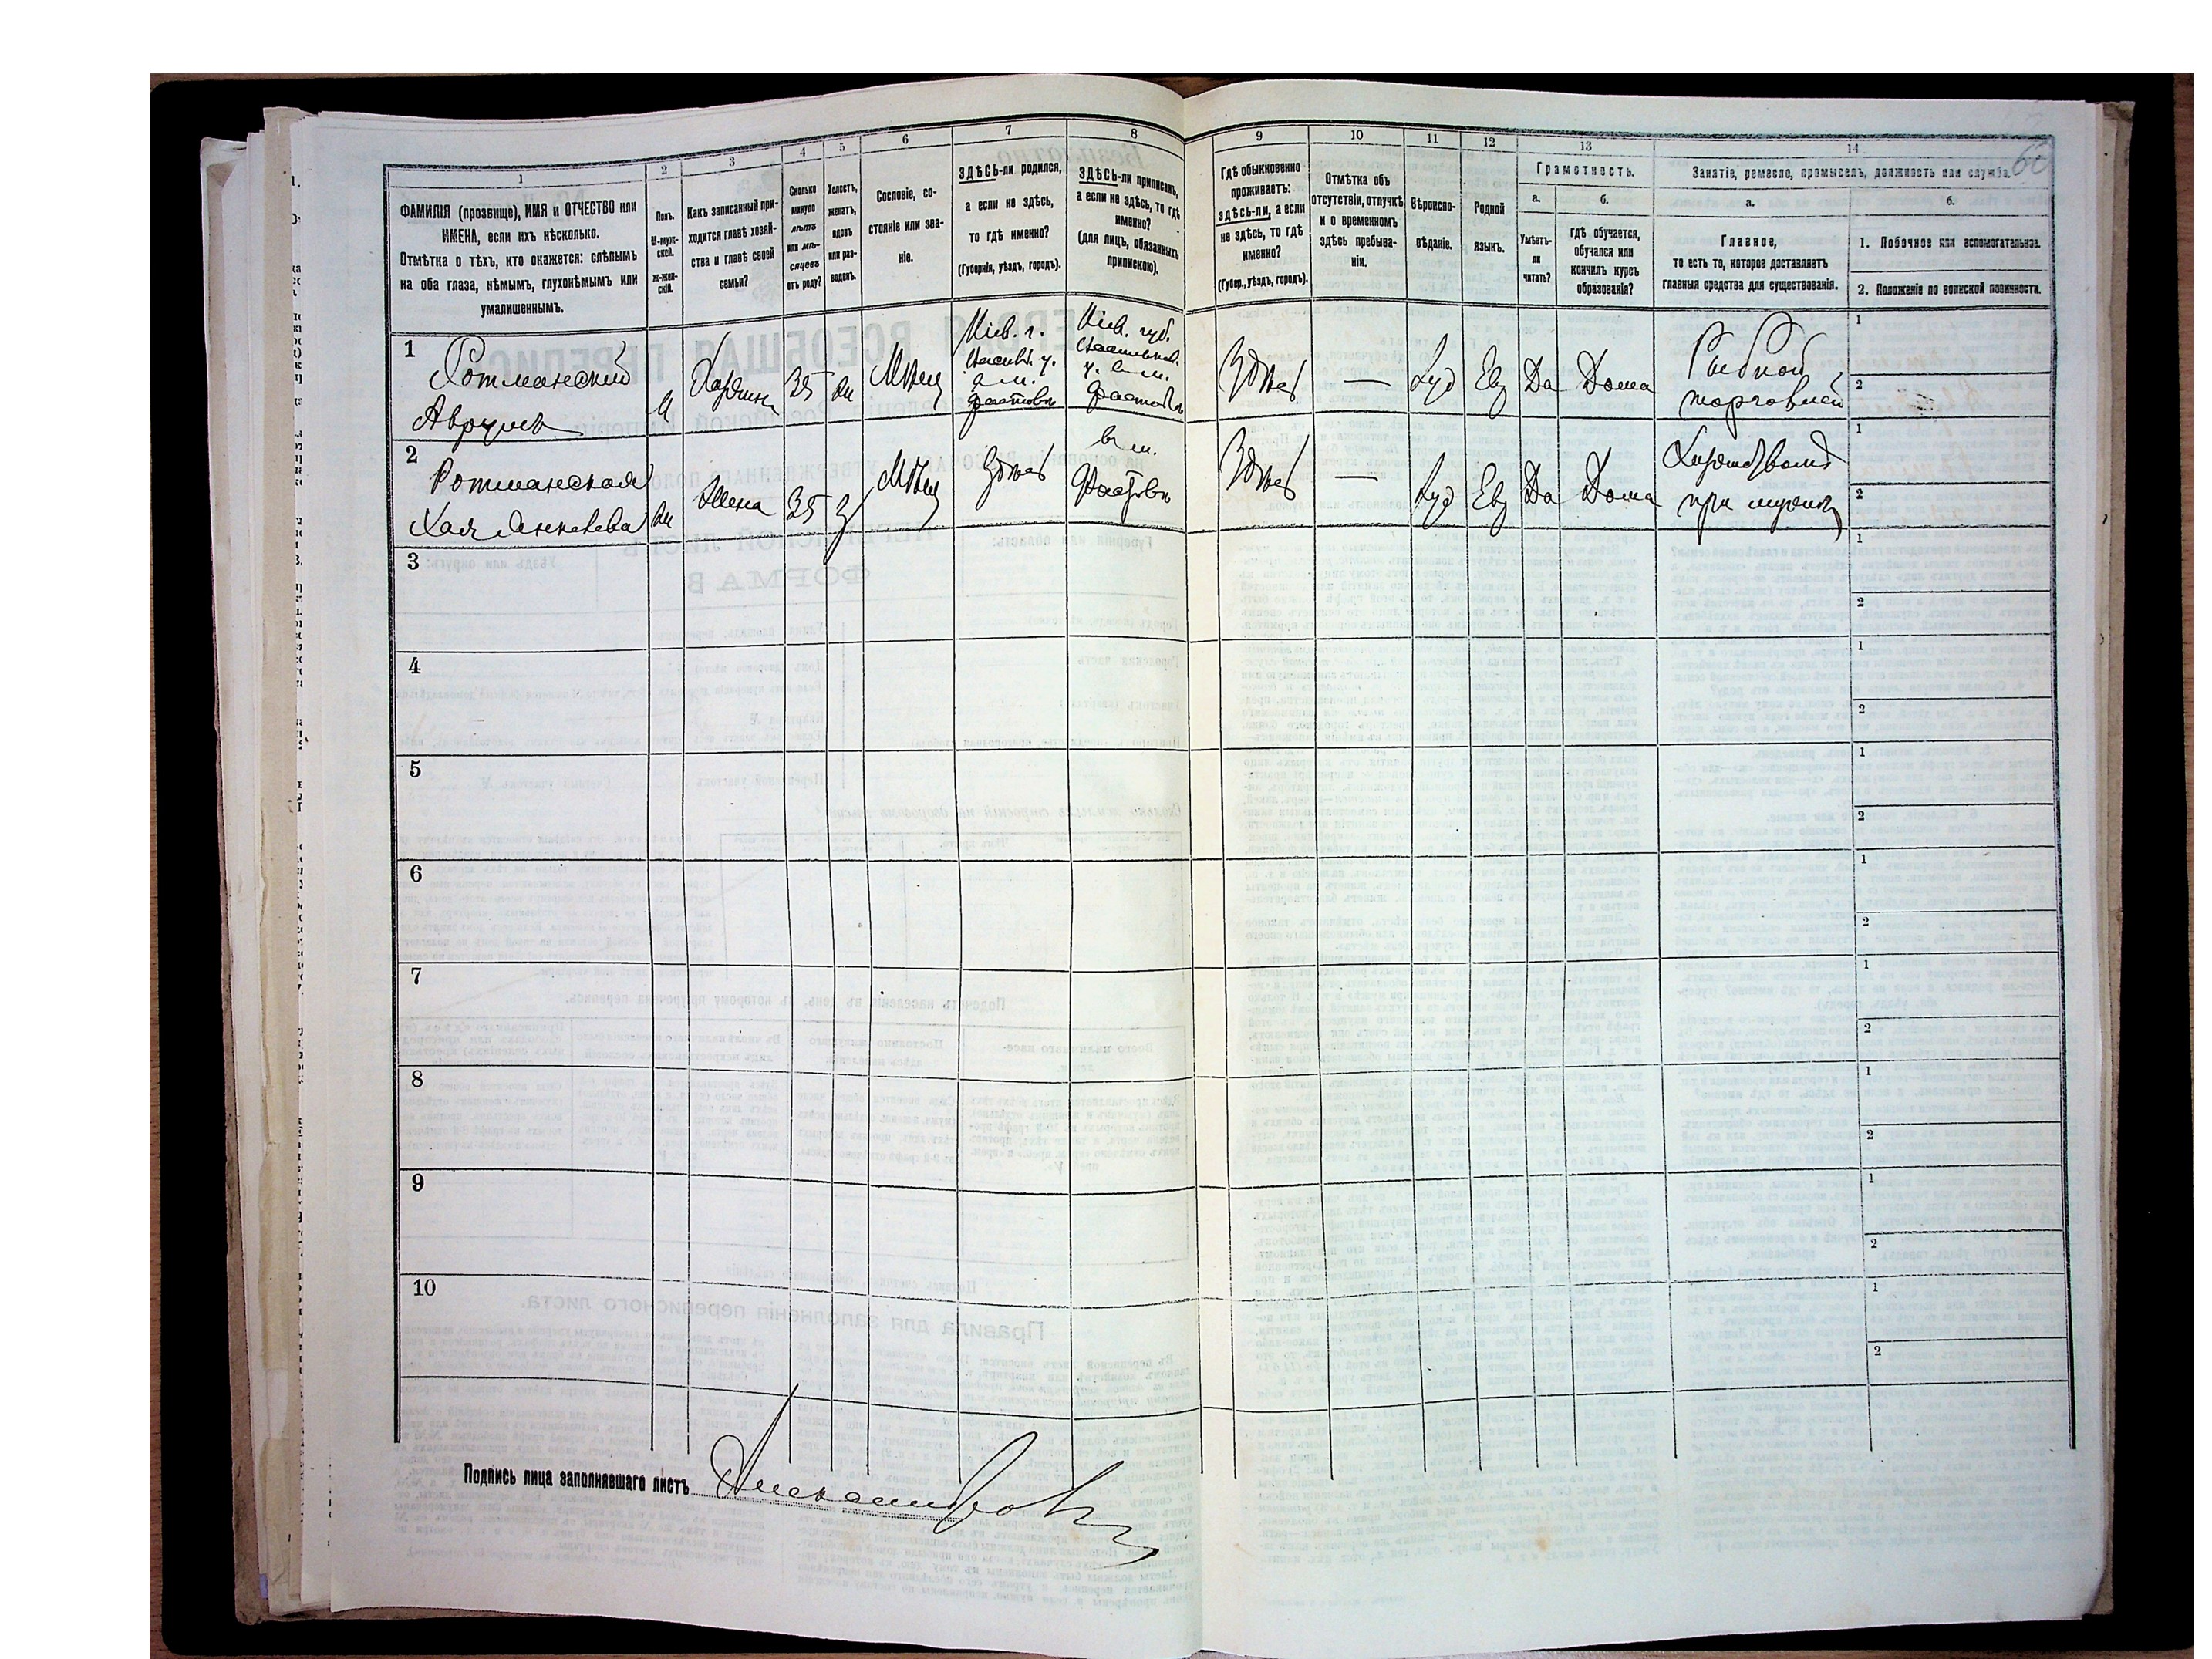 60
1 2 3 4 5 6 7 8 9 10 11 12 13 14
ФАМИЛІЯ (прозвище), ИМЯ и ОТЧЕСТВО или
ИМЕНА, если ихъ нѣсколько.
Отмѣтка о тѣхъ, кто окажется: слѣпымъ
на оба глаза, нѣмымъ, глухонѣмымъ или
умалишеннымъ.
Полъ.
М-муж-
ской.
Ж-жен-
скій.
Какъ записанный при-
ходится главѣ хозяй-
ства и главѣ своей
семьи?
Сколько
минуло
лѣтъ
или мѣ-
сяцевъ
отъ роду?
Холостъ,
женатъ,
вдовъ
или раз-
веденъ.
Сословіе, со-
стояніе или зва-
ніе.
ЗДѢСЬ-ли родился,
а если не здѣсь,
то гдѣ именно?
(Губернія, уѣздъ, городъ).
ЗДѢСЬ-ли приписанъ,
а если не здѣсь, то гдѣ
именно?
(для лицъ, обязанныхъ
припискою).
Гдѣ обыкновенно
проживаетъ:
ЗДѢСЬ-ли, а если
не здѣсь, то гдѣ
именно?
(Губер., уѣздъ, городъ).
Отмѣтка объ
отсутствіи, отлучкѣ
и о временномъ
здѣсь пребыва-
ніи.
Вѣроиспо-
вѣданіе.
Родной
языкъ.
Грамотность.
а.
Умѣетъ-
ли
читать?
б.
гдѣ обучается,
обучался или
кончилъ курсъ
образованія?
Занятіе, ремесло, промыселъ, должность или служба.
а.
Главное,
то есть то, которое доставляетъ
главныя средства для существованія.
б.
1. Побочное или вспомогательное.
2. Положеніе по воинской повинности.
1
Ротманский
М
Хозяинъ
35
ж
Мѣщ
Кіев. г.
м.
Фастовъ
Кіев. губ.
у. в м.
Фастовъ
Здѣсь
—
Іуд
Евр
Да
Дома
Рыбной
торговлей
1
2
2
Ротманская
Хая
ж
Жена
35
З
Мѣщ
Здѣсь
в м.
Фастовъ
Здѣсь
—
Іуд
Евр
Да
Дома
при мужѣ
1
2
3
1
2
4
1
2
5
1
2
6
1
2
7
1
2
8
1
2
9
1
2
10
1
2
Подпись лица заполнявшаго листъ